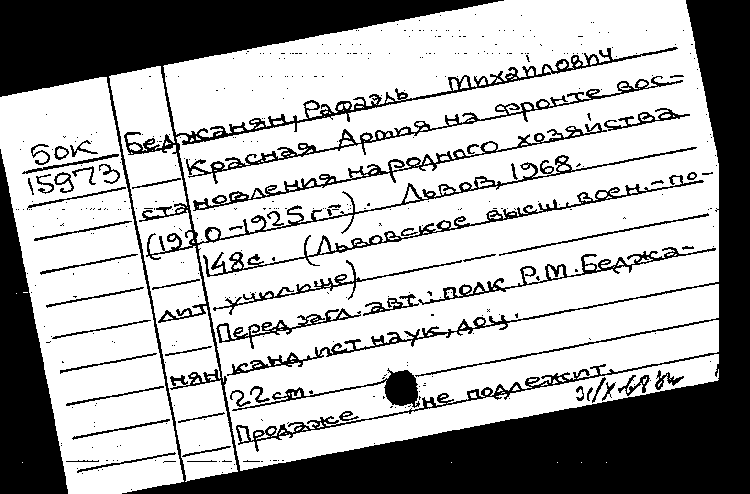 50К
15973
Беджанян, Рафаэль Михайлович
Красная Армия на фронте вос-
становления народного хозяйства
(1920-1925 гг.). Львов, 1968.
148с. (Львовское высш. воен.-по-
лит. училище).
Перед загл. авт.: полк Р.М.Беджа-
нян, канд. ист. наук, доц.
22 см.
Продаже не подлежит.